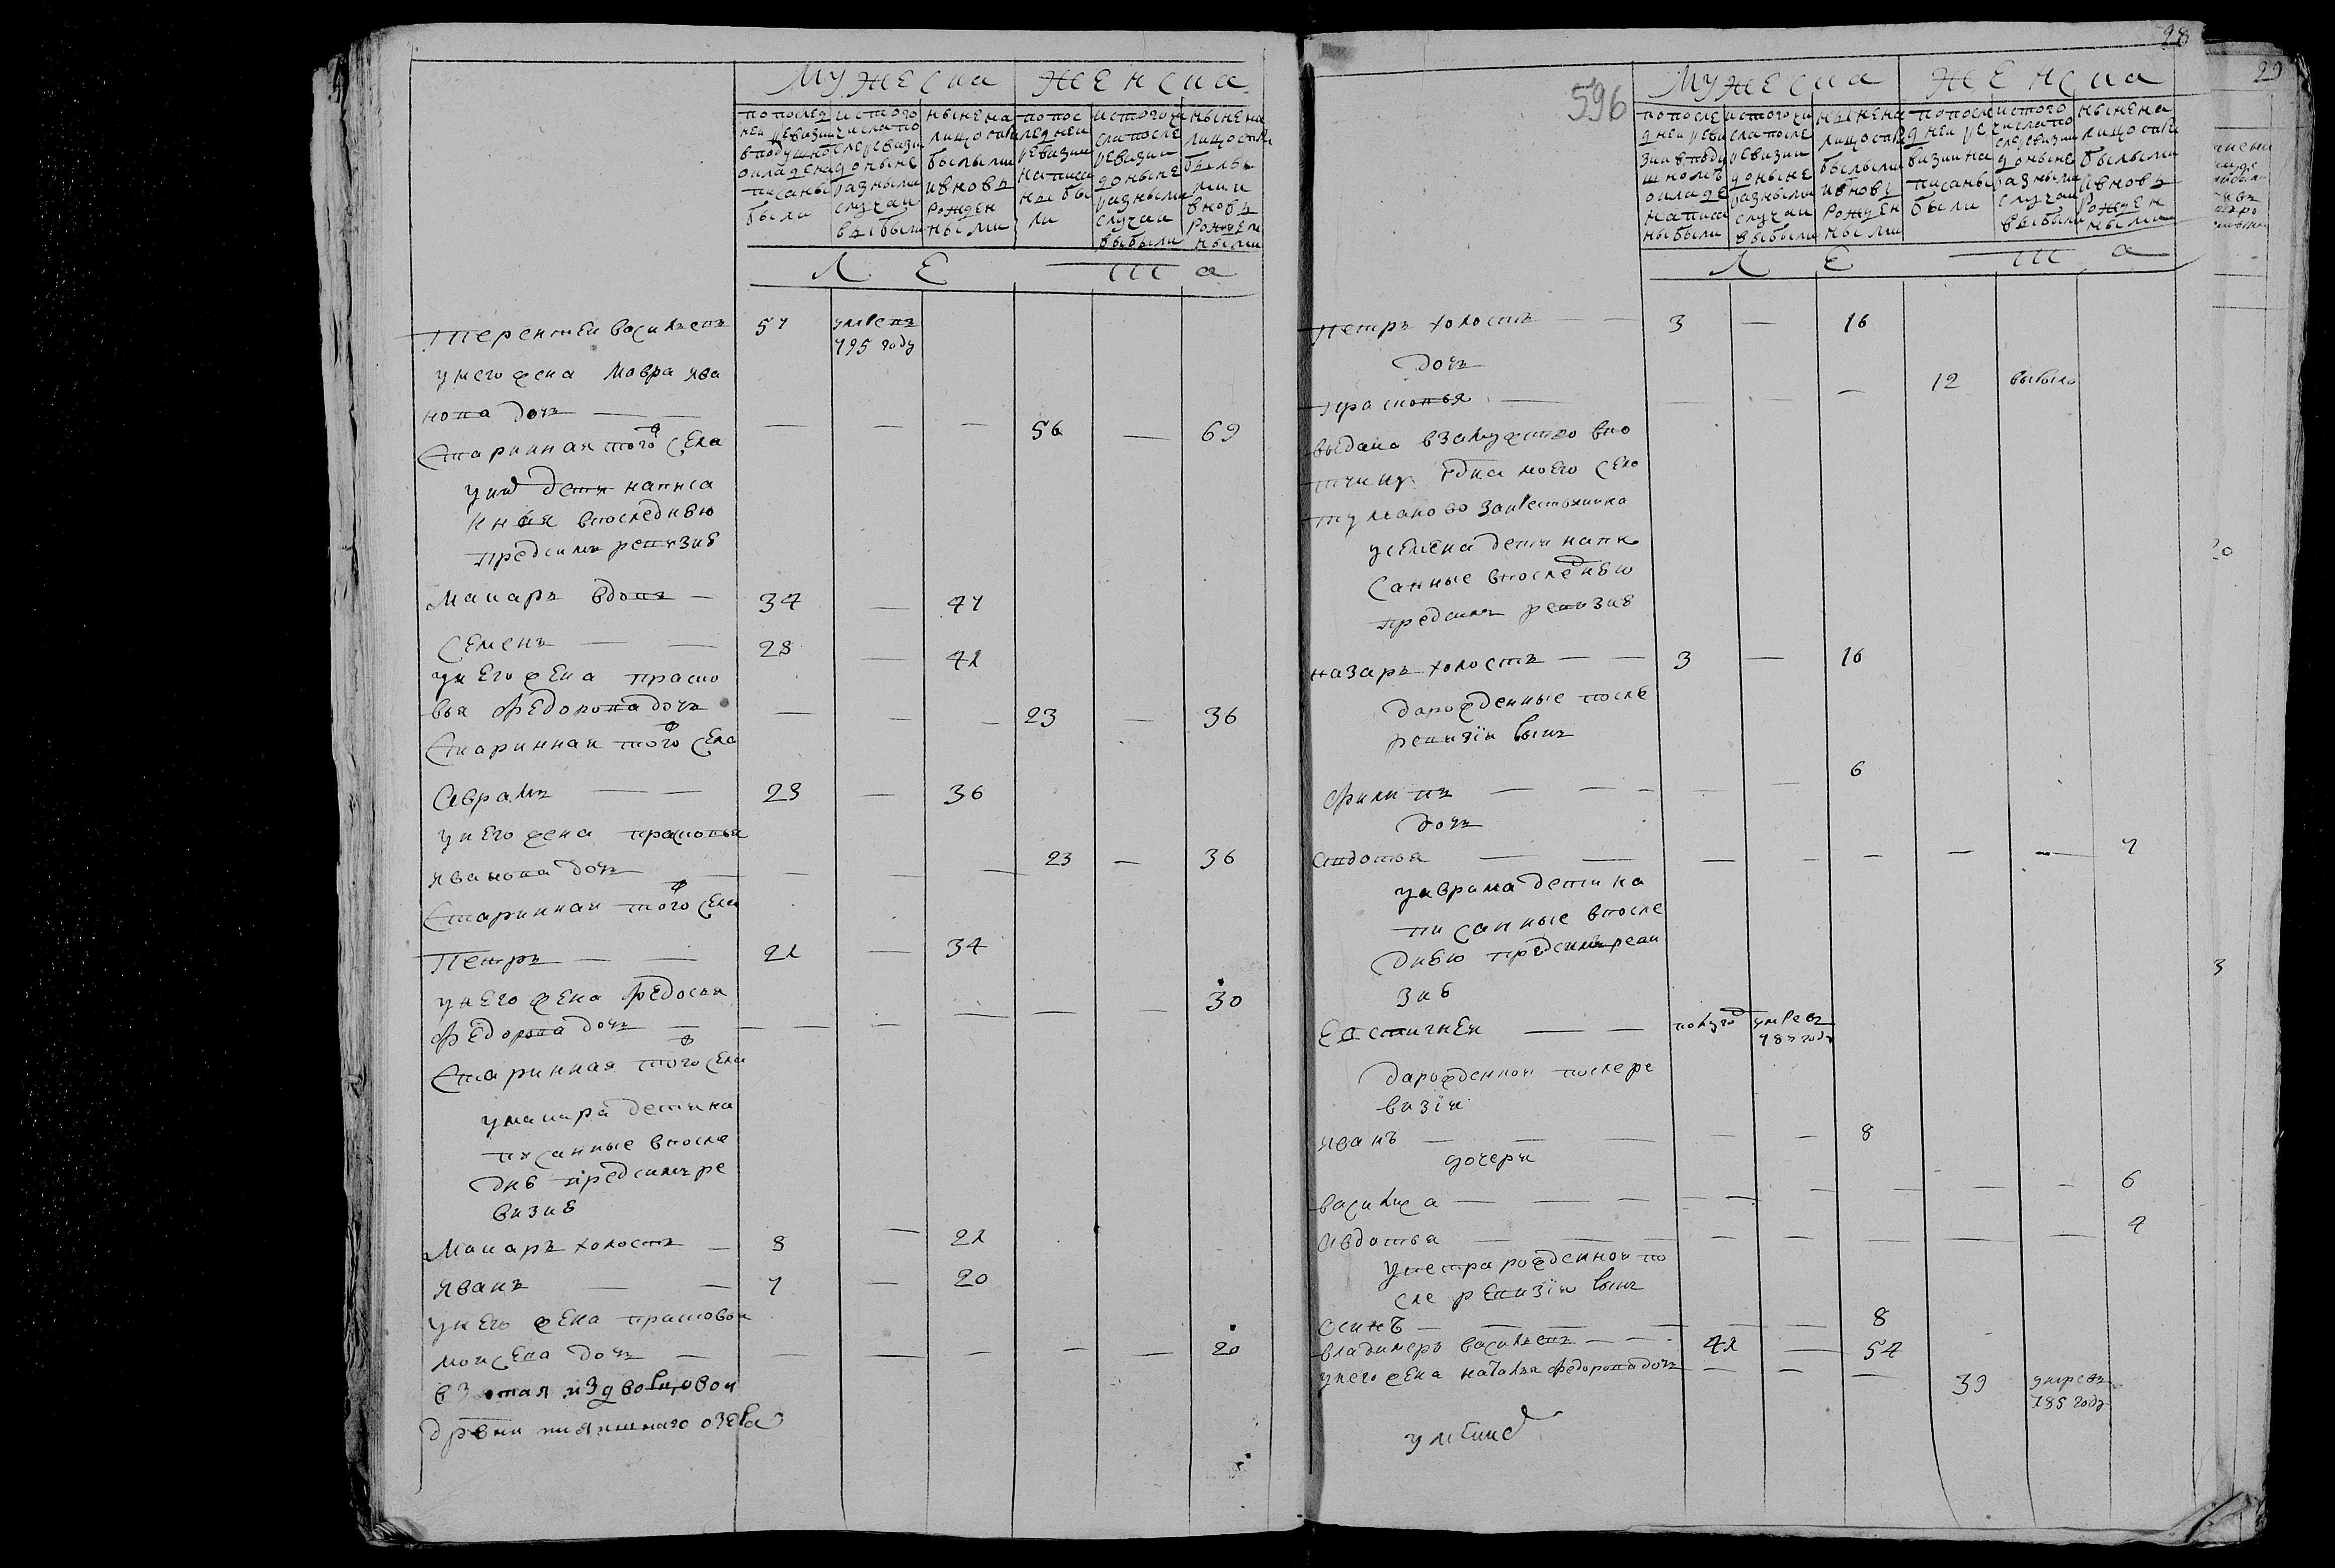 мужеска женска
по послед
ней ревизии
в подушно
окладе на
писаны
были
ис того
числа по
сле ревизи
до ныне
разными
случаи
выбыли
ныне на
лицо с при
былыми
и вновь
рожден
ными
по пос
ледней
ревизии
написа
ны бы
ли
ис того чи
сла после
ревизии
до ныне
разными
случаи
выбыли
ныне на
лицо с при
былы
ми и
вновь
рожден
ными
Л Е Т а
Терентей васильевъ 57 умре въ
795 году
у него жена мавра ива
нова дочь 56 — 69
Старинная того ж села
у них дети написа
нныя в последнюю
пред сим ревизию
Макаръ вдовъ — 34 — 47
Семенъ — — 28 — 41
у него жена праско
вья федорова дочь 23 — 36
Старинная того ж села
Аврамъ — — 23 — 36
у него жена прасковья
иванова дочь 23 — 36
Старинная того ж села
Петръ — — 21 — 34
у него жена федосья
федорова дочь — 30
Старинная того ж села
у макара дети на
писанные в после
днею пред симъ ре
визию
Макаръ холостъ — 8 — 21
иванъ — — 7 — 20
у него жена прасковья
моисева дочь — 20
взятая из
дрвни озера
28
596
мужеска женска
по после
дней реви
зии в поду
шномъ
окладе
написа
ны были
ис того чи
сла после
ревизии
до ныне
разными
случаи
выбыли
ныне на
лицо с при
былыми
и вновь
рожден
ными
по после
дней ре
визии на
писаны
были
ис того
числа по
сле ревизии
до ныне
разными
случаи
выбыли
ныне на
лицо с при
былыми
и вновь
рожден
ными
Л Е Т а
петръ холостъ — — 3 — 16
дочь
прасковья — 12 выбыла
выдана в замужство в во
тчину моего село
туманово за крестьянина
у семена дети напи
санные в последнюю
пред симъ ревизию
назаръ холостъ — — 3 — 16
да рожденные после
ревизiи сынъ
филипъ — 6
дочь
авдотья — 7
у аврама дети на
писанные в после
днюю пред симъ реви
зию
Евстигней — — полуго умре въ
787 году
да рожденной после ре
визiи
иванъ — 8
дочери
василиса — 6
авдотья — 4
у петра рожденной по
сле ревизiи сынъ
осипъ — 8
владимеръ васильевъ — 41 — 54
у него жена наталья федорова дочь — 39 умре въ
785 году
у них
29